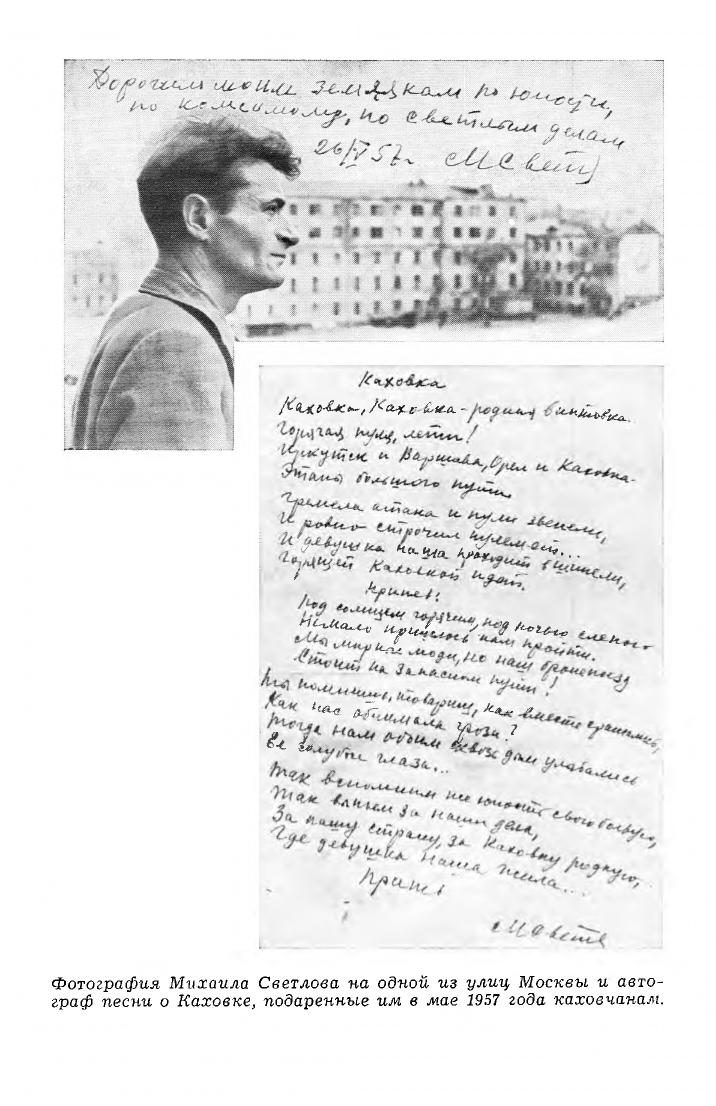 Дорогим моим землякам по юности,
по комсомолу, по светлым делам
26/V 57 г. МСветл
Каховка
Каховка, Каховка - родная винтовка
Горячая пуля, лети!
Иркутск и Варшава, Орел и Каховка -
Этапы большого пути.
Гремела атака и пули звенели,
И ровно строчил пулемет...
И девушка наша проходит в шинели,
Горящей Каховкой идет.
Припев:
Под солнцем горячим, под ночью слепою
Немало пришлось нам пройти.
Мы мирные люди, но наш бронепоезд
Стоит на запасном пути!
Ты помнишь, товарищ, как вместе сражались,
Как нас обнимала гроза?
Тогда нам обоим сквозь дым улыбались
Ее голубые глаза...
Так вспомним же юность свою боевую,
Так выпьем за наши дела,
За нашу страну, за Каховку родную,
Где девушка наша жила...
Припев
МСветл
Фотография Михаила Светлова на одной из улиц Москвы и авто-
граф песни о Каховке, подаренные им в мае 1957 года каховчанам.